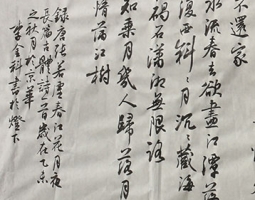 不還家
水流春去欲盡江潭落
復西斜斜月沉沉藏海
碣石瀟湘無限路
知乘月幾人歸落月
情滿江樹
錄唐張若虛春江花月夜
長篇古體詩一首歲在乙未
之秋月於京華
書於燈下